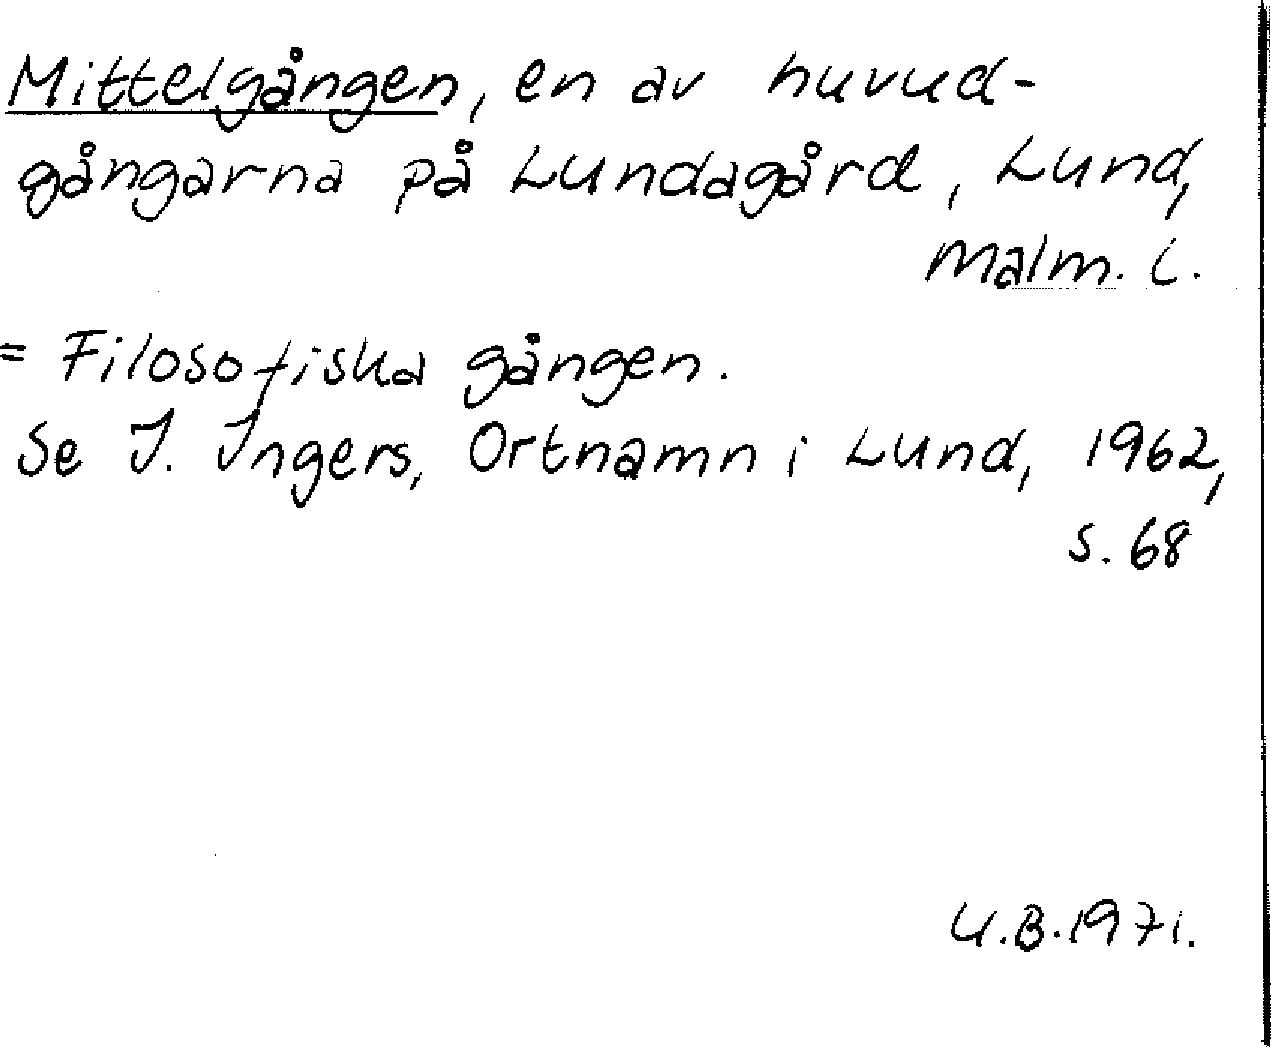 Mittelgången, en av huvud-
gångarna på Lundagård, Lund,
Malm. l.
= Filosofiska gången.
Se I. Ingers, Ortnamn i Lund, 1962,
s. 68
U.B.1971.